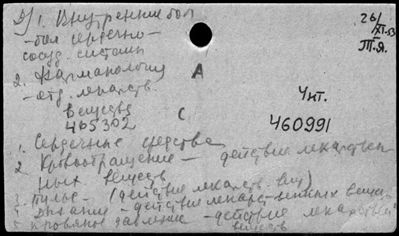 1. Внутренние бол
-бол сердечно-
сосуд. системы
26/XI-53
Т.Я.
2. Фармакология А
- отд. лекарств.
веществ С
405302
Чит.
460991
1. Сердечные средства
2. Кровообращение - действие лекарствен
ных веществ
3. Пульс - (действие лекарств. вещ)
4. Дыхание - действие лекарственных вещес.
5. Кровяное давление - действие лекарствен
веществ